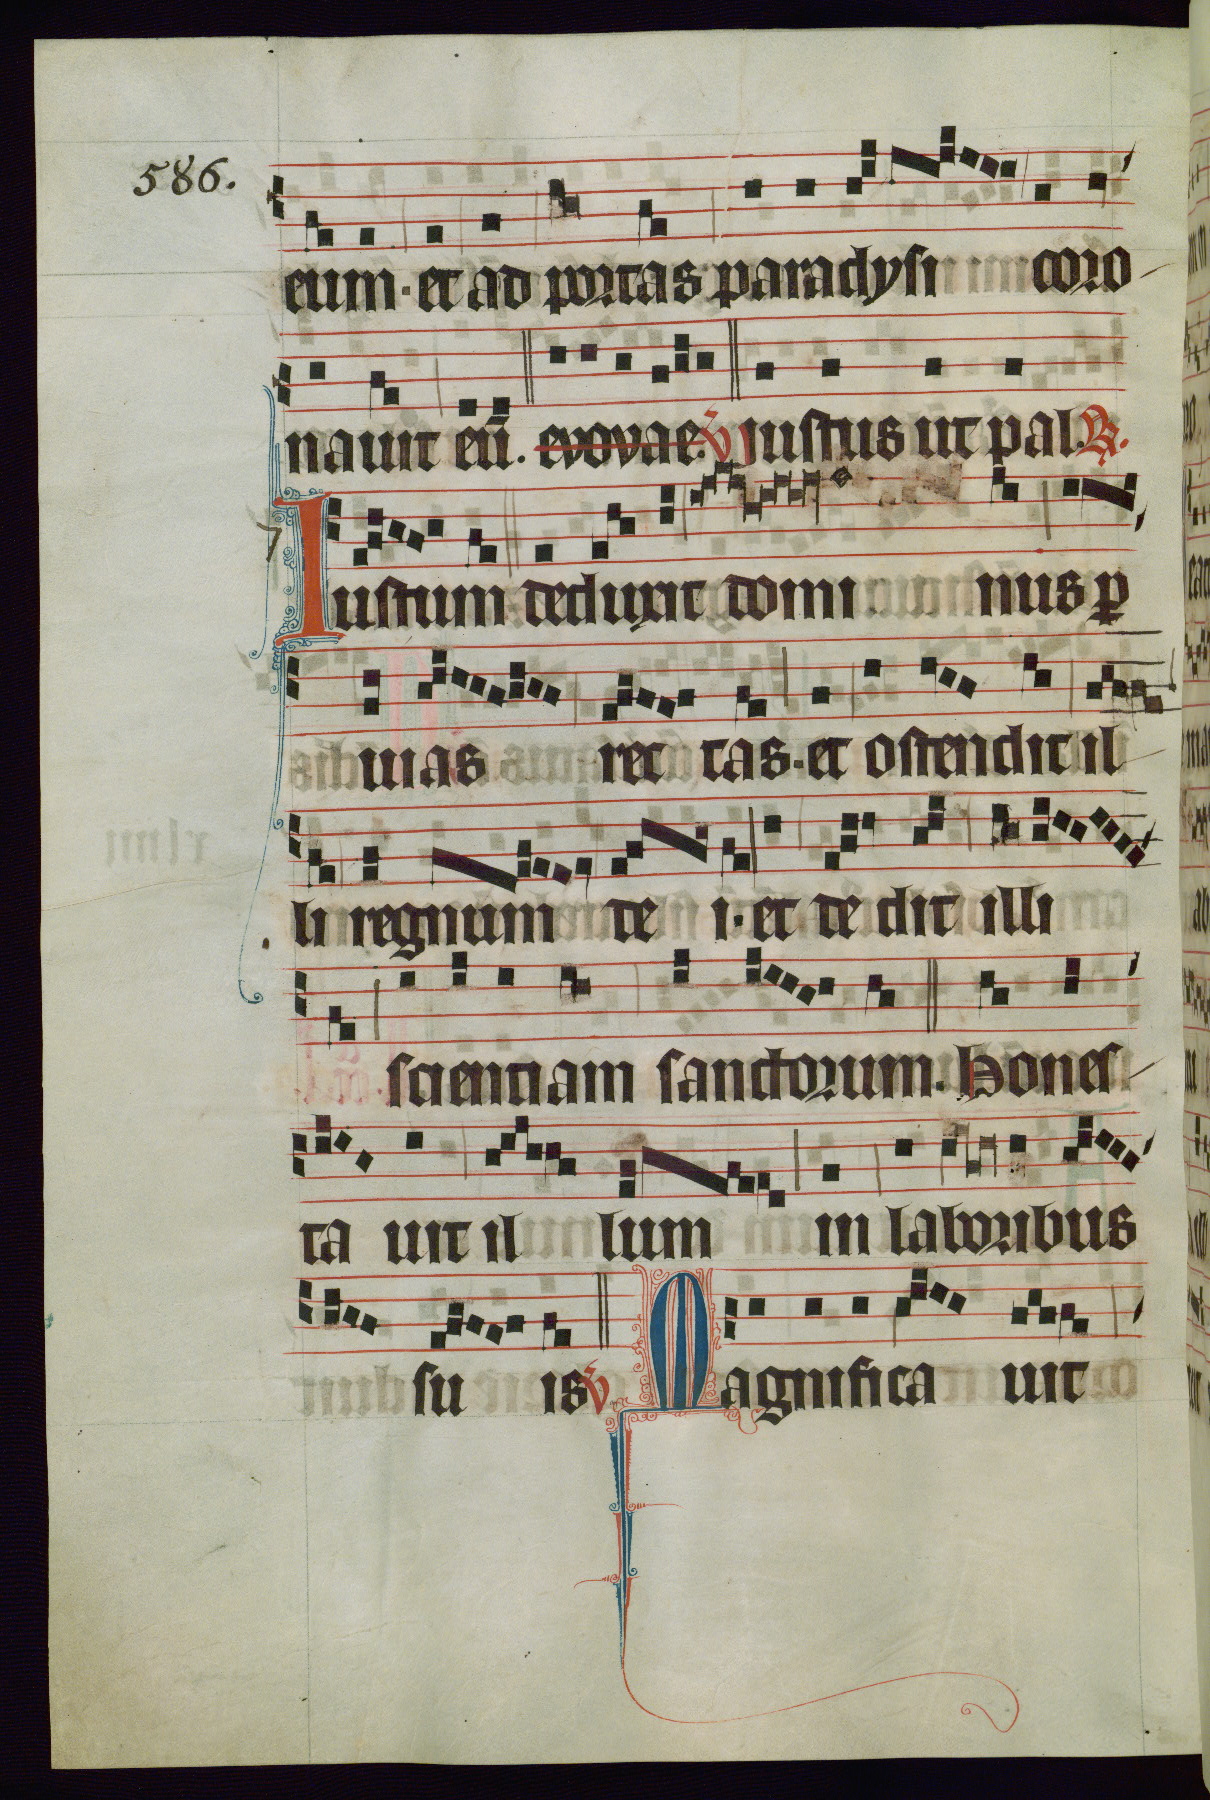 586.
eum·et ad portas paradysi coro
nauit eū. evovae. V Justus ut pal. R.
Iustum deduxit domi nus p
uias rec tas·et ostendit il
li regnum de i·et de dit illi
scientiam sanctorum. Hones
ta uit il lum in laboribus
su is V Magnifica uit